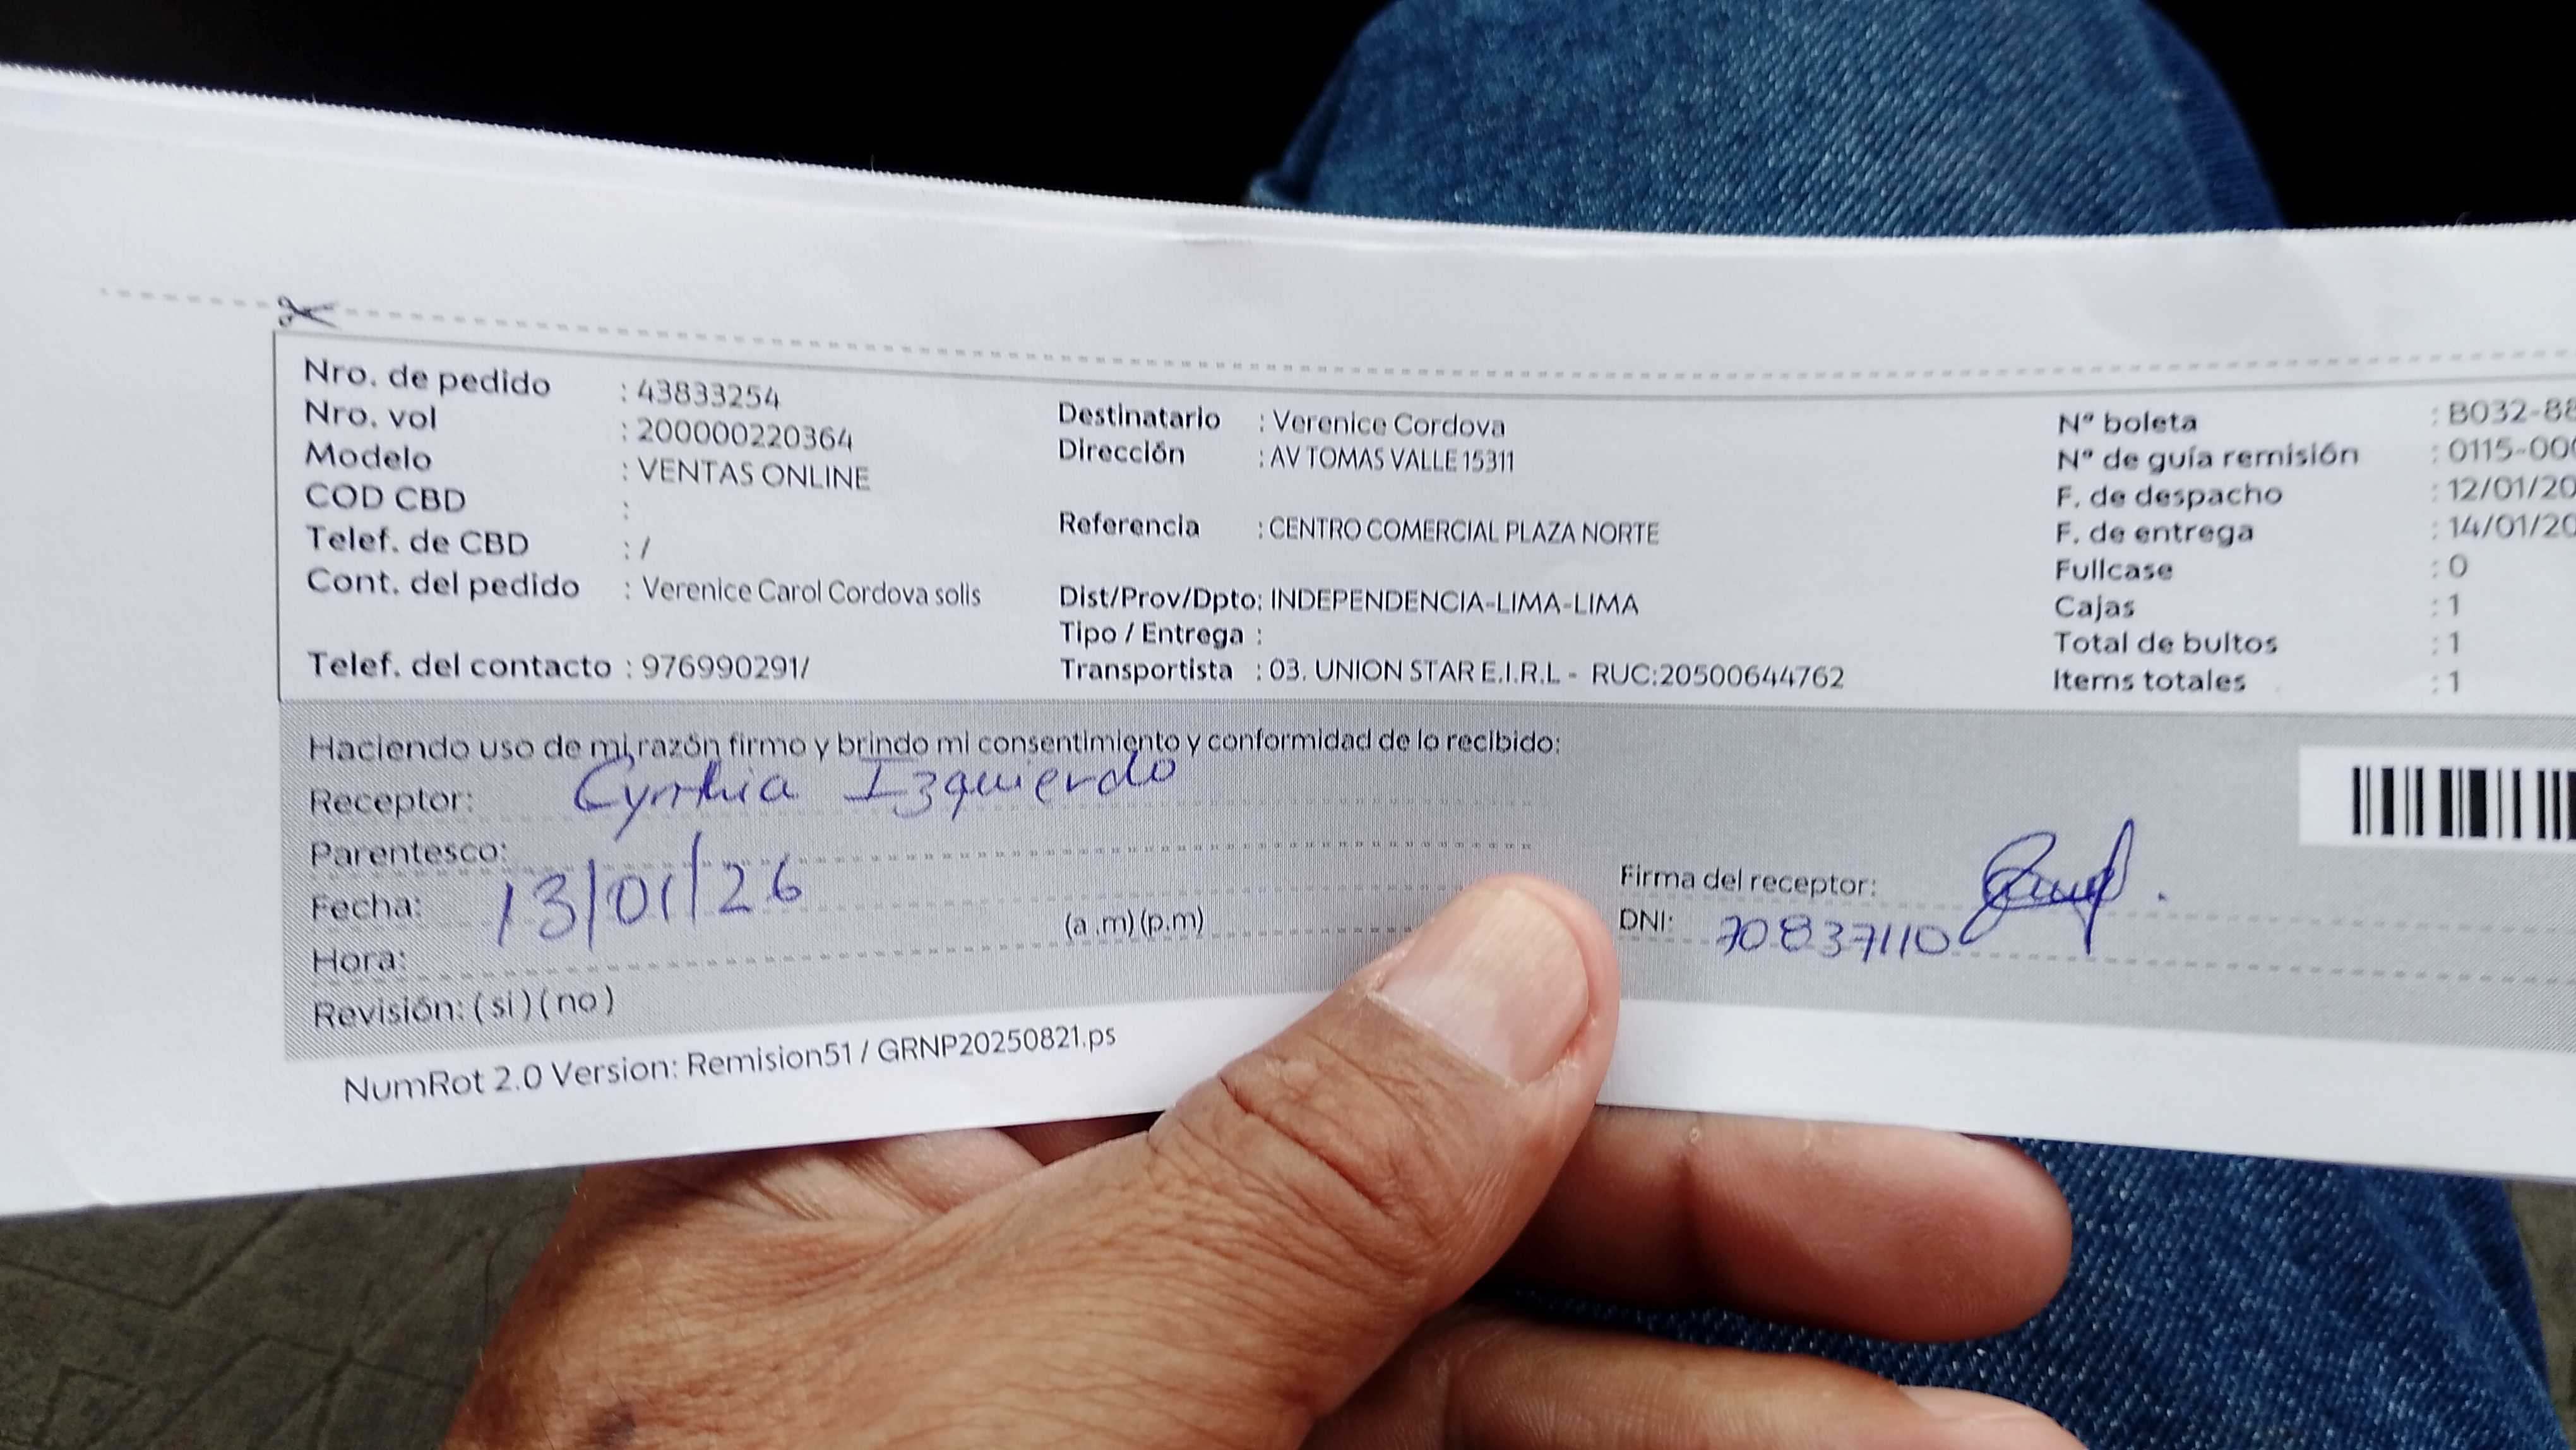 Nro. de pedido : 43833254
Nro. vol : 200000220364
Modelo : VENTAS ONLINE
COD CBD :
Telef. de CBD : /
Cont. del pedido : Verenice Carol Cordova solis
Telef. del contacto : 976990291/
Destinatario : Verenice Cordova
Dirección : AV TOMAS VALLE 15311
Referencia : CENTRO COMERCIAL PLAZA NORTE
Dist/Prov/Dpto: INDEPENDENCIA-LIMA-LIMA
Tipo / Entrega :
Transportista : 03. UNION STAR E.I.R.L - RUC:20500644762
Nº boleta : B032-88
Nº de guía remisión : 0115-000
F. de despacho : 12/01/20
F. de entrega : 14/01/20
Fullcase : 0
Cajas : 1
Total de bultos : 1
Items totales : 1
Haciendo uso de mi razón firmo y brindo mi consentimiento y conformidad de lo recibido:
Receptor: Cynthia Izquierdo
Parentesco:
Fecha: 13/01/26
Hora: (a .m) (p.m)
Revisión: ( si ) ( no )
Firma del receptor:
DNI: 70837110
NumRot 2.0 Version: Remision51 / GRNP20250821.ps